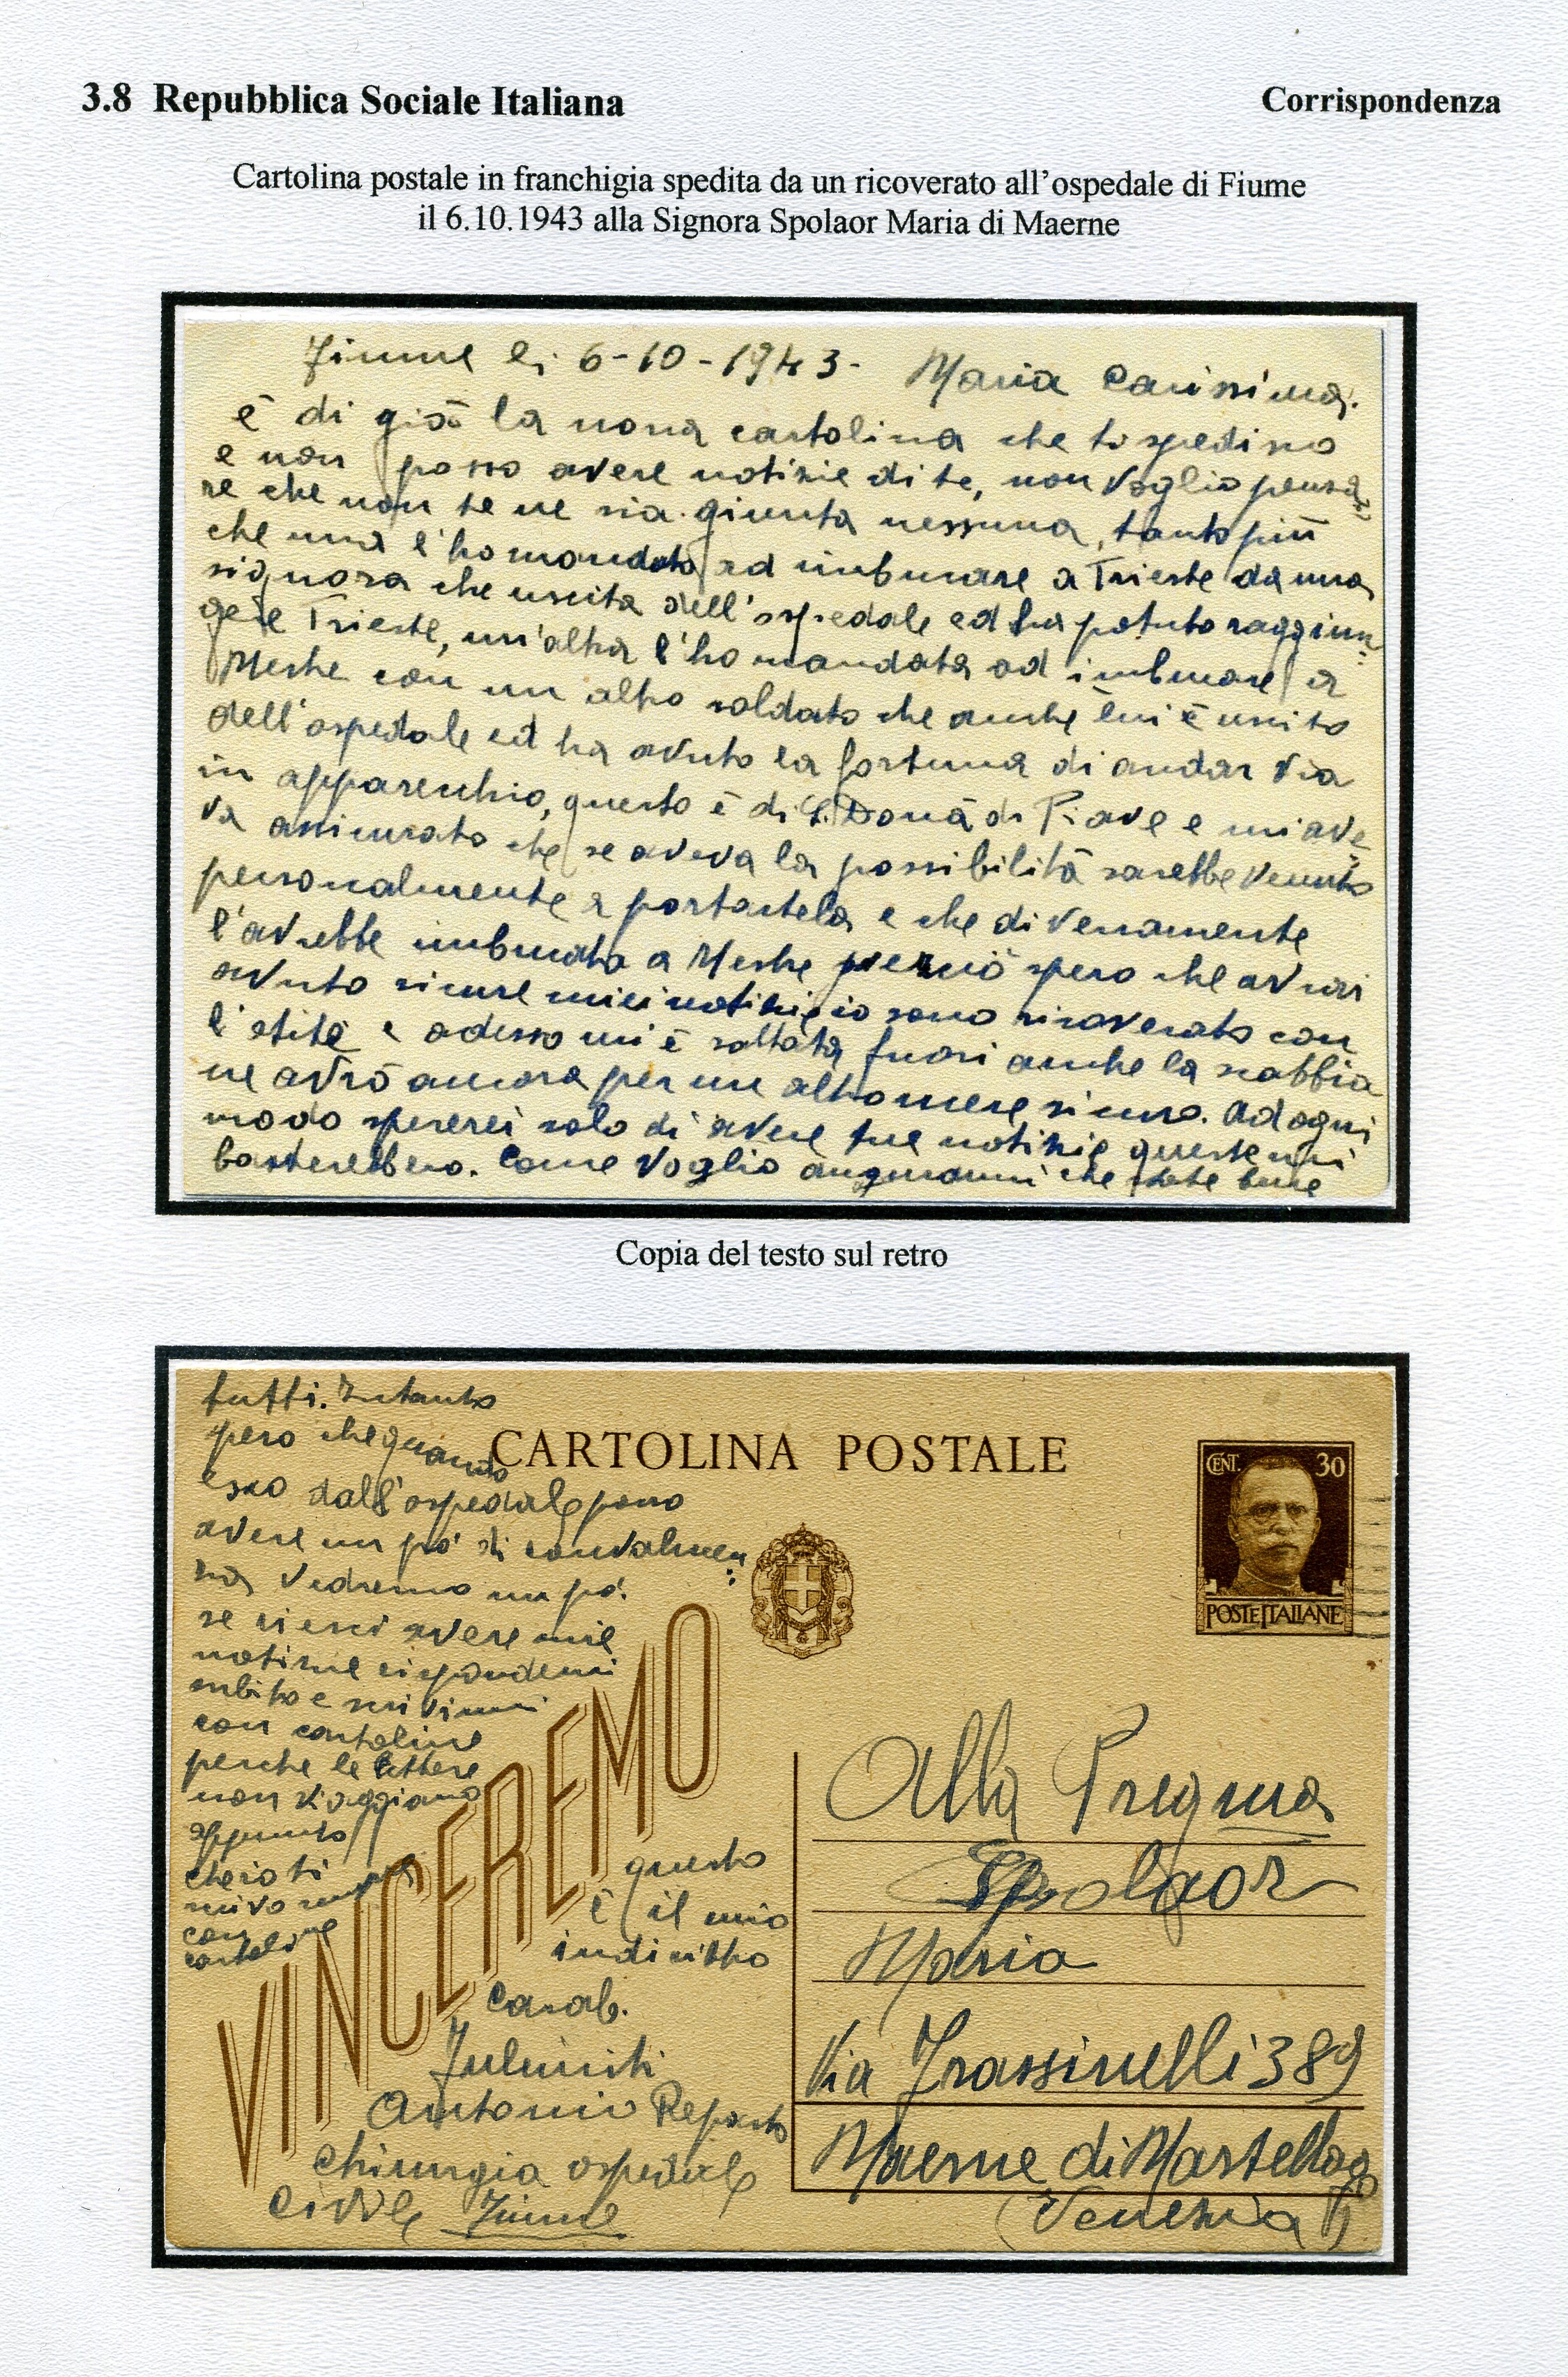 3.8 Repubblica Sociale Italiana
Corrispondenza
Cartolina postale in franchigia spedita da un ricoverato all'ospedale di Fiume
il 6.10.1943 alla Signora Spolaor Maria di Maerne
Fiume li 6-10-1943- Maria Carissima.
è di già la nona cartolina che ti spedisco
e non posso avere notizie di te, non voglio pensa
re che non te ne sia giunta nessuna, tanto più
che una l'ho mandata ad imbucare a Trieste da una
signora che uscita dell'ospedale ed ha potuto raggiun
gere Trieste, un'altra l'ho mandata ad imbucare a
Mestre con un altro soldato che anche lui è uscito
dell'ospedale ed ha avuto la fortuna di andar via
in apparecchio, questo è di S. Donà di Piave e mi ave
va assicurato che se aveva la possibilità sarebbe venuto
personalmente a portartela e che diversamente
l'avrebbe imbucata a Mestre perciò spero che avrai
avuto sicure miei notizie io sono ricoverato con
l'otite e adesso mi è saltata fuori anche la scabbia
ne avrò ancora per un altro mese sicuro. Ad ogni
modo spererei solo di avere tue notizie queste mi
basterebbero. Come voglio augurarmi che state bene
Copia del testo sul retro
tutti. Intanto
spero che quando
esco dall'ospedale posso
avere un po' di convalescen
za vedremo un po'.
se riesci avere mie
notizie rispondemi
subito e scrivimi
con cartoline
perche le lettere
non viaggiano
appunto
che io ti
scrivo sempre
con
cartoline
CARTOLINA POSTALE
CENT. 30
POSTE ITALIANE
VINCEREMO
questo
è il mio
indirizzo
Carab.
Antonio Reparto
Chirurgia ospedale
Civile Fiume
Alla Pregma
Spolaor
Maria
Via Frassinelli 389
Maerne di Martellago
(Venezia)